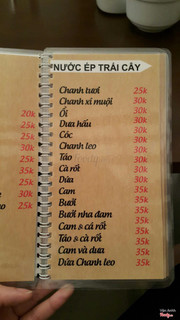 NƯỚC ÉP TRÁI CÂY
Chanh tươi 25k
Chanh xí muội 30k
Ổi 30k
Dưa hấu 30k
Cóc 30k
Chanh leo 30k
Táo 30k
Cà rốt 30k
Dứa 30k
Cam 35k
Bưởi 35k
Bưởi nha đam 35k
Cam & cà rốt 35k
Táo & cà rốt 35k
Cam và dưa 35k
Dừa Chanh leo 35k
20k
25k
25k
30k
30k
25k
35k
25k
25k
30k
25k